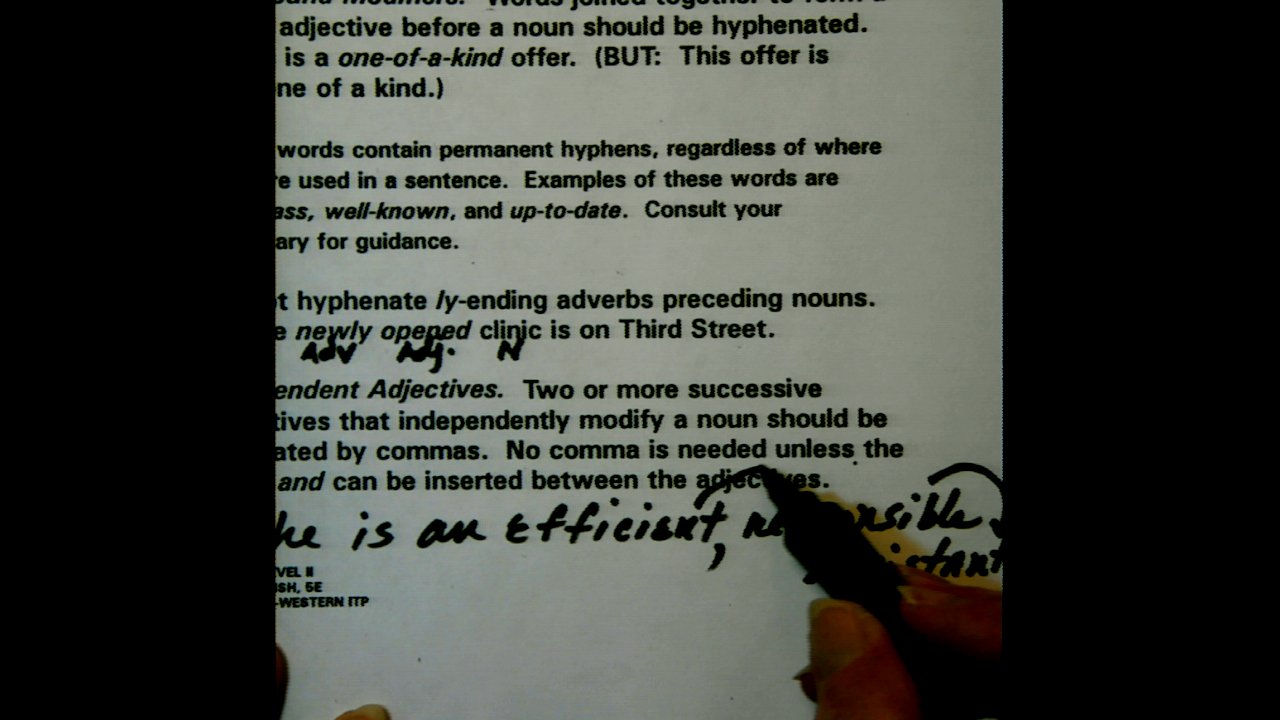 adjective before a noun should be hyphenated.
is a one-of-a-kind offer. (BUT: This offer is
ne of a kind.)
words contain permanent hyphens, regardless of where
e used in a sentence. Examples of these words are
ass, well-known, and up-to-date. Consult your
ary for guidance.
t hyphenate ly-ending adverbs preceding nouns.
e newly opened clinic is on Third Street.
Adv Adj. N
endent Adjectives. Two or more successive
tives that independently modify a noun should be
ated by commas. No comma is needed unless the
and can be inserted between the adjectives.
he is an efficient,
VEL II
SH, 5E
-WESTERN ITP